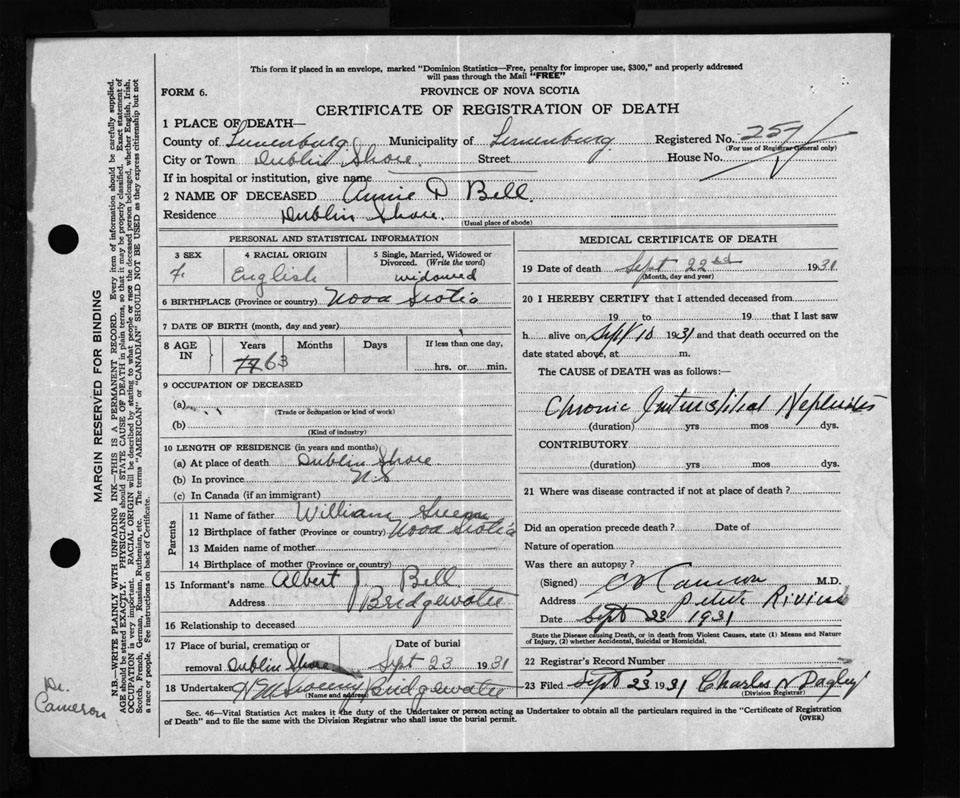 This form if placed in an envelope, marked "Dominion Statistics—Free, penalty for improper use, $300," and properly addressed
will pass through the Mail "FREE"
FORM 6.
PROVINCE OF NOVA SCOTIA
CERTIFICATE OF REGISTRATION OF DEATH
1 PLACE OF DEATH—
County of Lunenburg Municipality of Lunenburg Registered No. 257
(For use of Registrar General only)
City or Town Dublin Shore Street House No.
If in hospital or institution, give name
2 NAME OF DECEASED Annie D Bell
Residence Dublin Shore.
(Usual place of abode)
PERSONAL AND STATISTICAL INFORMATION
3 SEX 4 RACIAL ORIGIN 5 Single, Married, Widowed or
Divorced. (Write the word)
F. English widowed
6 BIRTHPLACE (Province or country) Nova Scotia
7 DATE OF BIRTH (month, day and year)
8 AGE IN Years Months Days If less than one day,
63 hrs. or min.
9 OCCUPATION OF DECEASED
(a)
(Trade or occupation or kind of work)
(b)
(Kind of industry)
10 LENGTH OF RESIDENCE (in years and months)
(a) At place of death Dublin Shore
(b) In province N.S
(c) In Canada (if an immigrant)
Parents
11 Name of father William
12 Birthplace of father (Province or country) Nova Scotia
13 Maiden name of mother
14 Birthplace of mother (Province or country)
15 Informant's name Albert J. Bell
Address Bridgewater
16 Relationship to deceased
17 Place of burial, cremation or Date of burial
removal Dublin Shore Sept 23 1931
18 Undertaker Bridgewater
(Name and address)
MEDICAL CERTIFICATE OF DEATH
19 Date of death Sept 22nd 1931
(Month, day and year)
20 I HEREBY CERTIFY that I attended deceased from
19 to 19 that I last saw
h alive on Sept 10 1931 and that death occurred on the
date stated above, at m.
The CAUSE of DEATH was as follows:—
Chronic Interstitial Nephritis
(duration) yrs mos dys.
CONTRIBUTORY
(duration) yrs. mos. dys.
21 Where was disease contracted if not at place of death?
Did an operation precede death? Date of
Nature of operation
Was there an autopsy?
(Signed) Cameron M.D.
Address Petite Riviere
Date Sept 23 1931
State the Disease causing Death, or in death from Violent Causes, state (1) Means and Nature
of Injury, (2) whether Accidental, Suicidal or Homicidal.
22 Registrar's Record Number
23 Filed Sept 23 1931 Charles N Pagley
(Division Registrar)
Sec. 46—Vital Statistics Act makes it the duty of the Undertaker or person acting as Undertaker to obtain all the particulars required in the "Certificate of Registration
of Death" and to file the same with the Division Registrar who shall issue the burial permit.
(OVER)
MARGIN RESERVED FOR BINDING
N.B.—WRITE PLAINLY WITH UNFADING INK—THIS IS A PERMANENT RECORD. Every item of information should be carefully supplied.
AGE should be stated EXACTLY. PHYSICIANS should STATE CAUSE OF DEATH in plain terms, so that it may be properly classified. Exact statement of
OCCUPATION is very important. RACIAL ORIGIN will be described by stating to what people or race the deceased person belonged, whether English, Irish,
Scotch, French, German, Russian, Ruthenian, etc. The terms "AMERICAN" or "CANADIAN" SHOULD NOT BE USED as they express citizenship but not
a race or people. See instructions on back of Certificate.
Dr.
Cameron